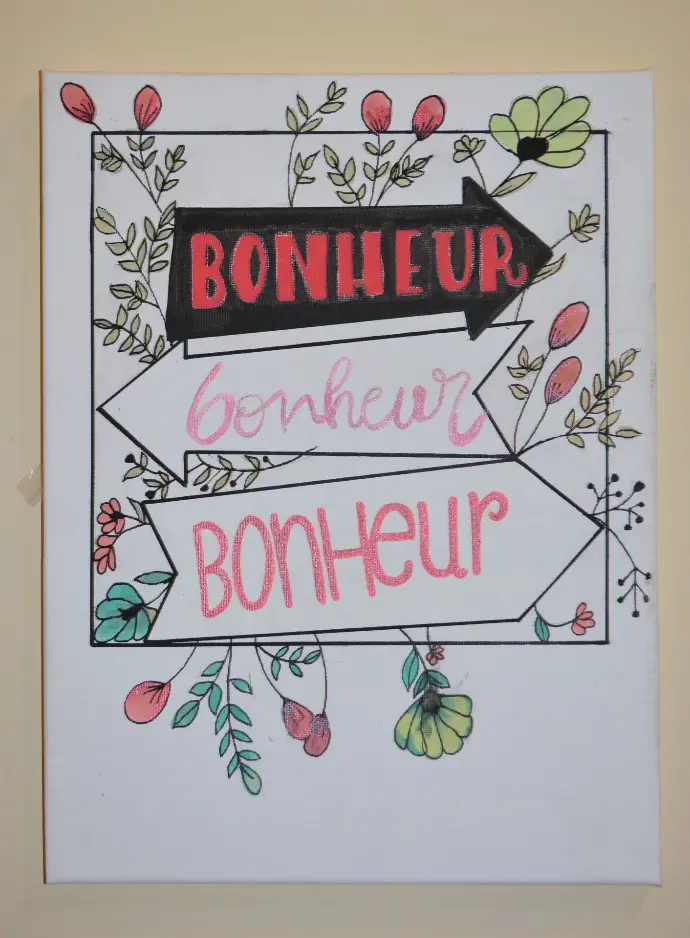 BONHEUR
bonheur
BONHeur